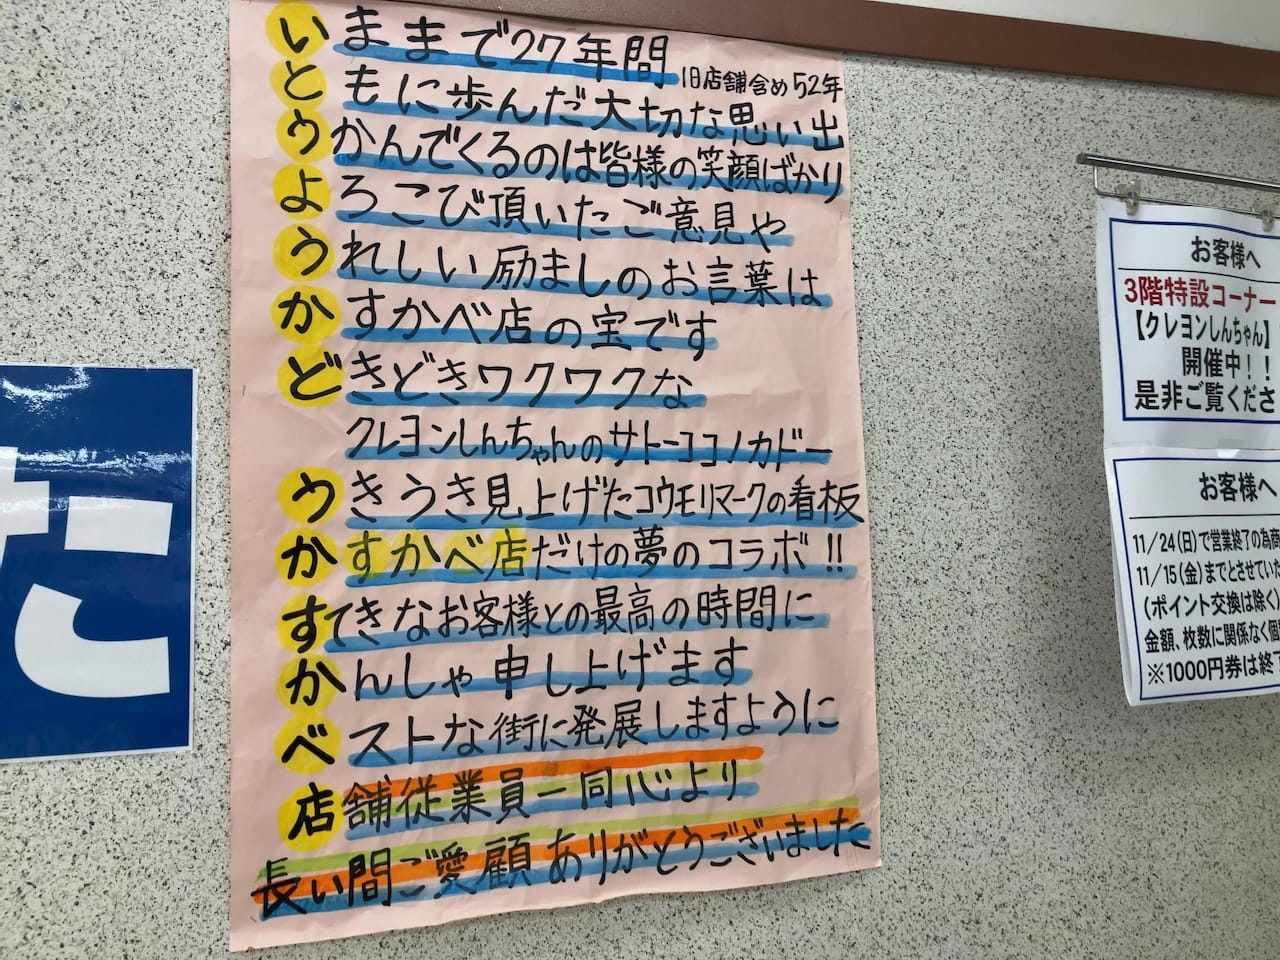 いままで27年間 旧店舗含め52年
ともに歩んだ大切な思い出
うかんでくるのは皆様の笑顔ばかり
よろこび頂いたご意見や
うれしい励ましのお言葉は
かすかべ店の宝です
どきどきワクワクな
クレヨンしんちゃんのサトーココノカドー
うきうき見上げたコウモリマークの看板
かすかべ店だけの夢のコラボ!!
すてきなお客様との最高の時間に
かんしゃ申し上げます
ベストな街に発展しますように
店舗従業員一同心より
長い間ご愛顧ありがとうございました
た
お客様へ
3階特設コーナー
【クレヨンしんちゃん】
開催中!!
是非ご覧くださ
お客様へ
11/24(日)で営業終了の為商
11/15(金)までとさせていた
(ポイント交換は除く)
金額、枚数に関係なく個
※1000円券は終了